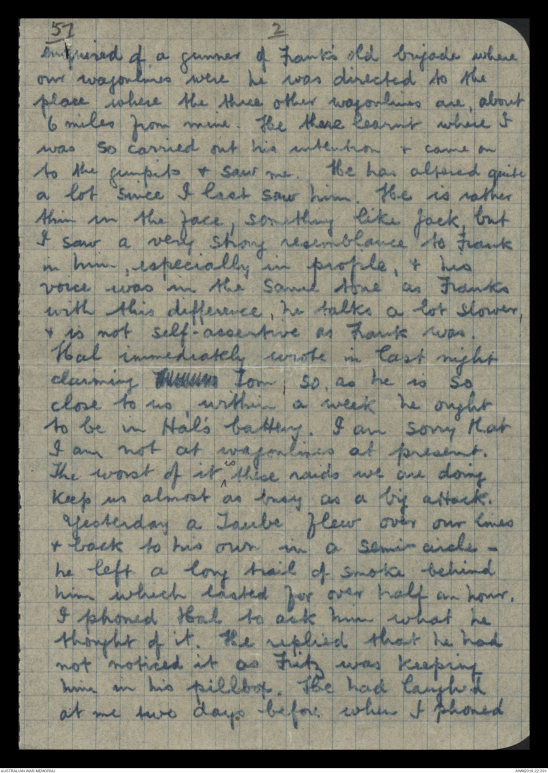 57 2
enquired of a gunner of Frank's old brigade where
our wagonlines were he was directed to the
place where the three other wagonlines are, about
6 miles from mine. He there learnt where I
was so carried out his intention + came on
to the gunpits + saw me. He has altered quite
a lot since I last saw him. He is rather
thin in the face, something like Jack, but
I saw a very strong resemblance to Frank
in him, especially in profile, + his
voice was in the same tone as Franks
with this difference, he talks a lot slower,
+ is not self-assertive as Frank was.
Hal immediately wrote in last night
claiming Tom, so, as he is so
close to us, within a week he ought
to be in Hal's battery. I am sorry that
I am not at wagonlines at present.
The worst of it is these raids we are doing
keep us almost as busy as a big attack.
Yesterday a Taube flew over our lines
+ back to his own in a semi-circle -
he left a long trail of smoke behind
him which lasted for over half an hour.
I phoned Hal to ask him what he
thought of it. He replied that he had
not noticed it as Fritz was keeping
him in his pillbox. He had laugh'd
at me two days before when I phoned
AUSTRALIAN WAR MEMORIAL